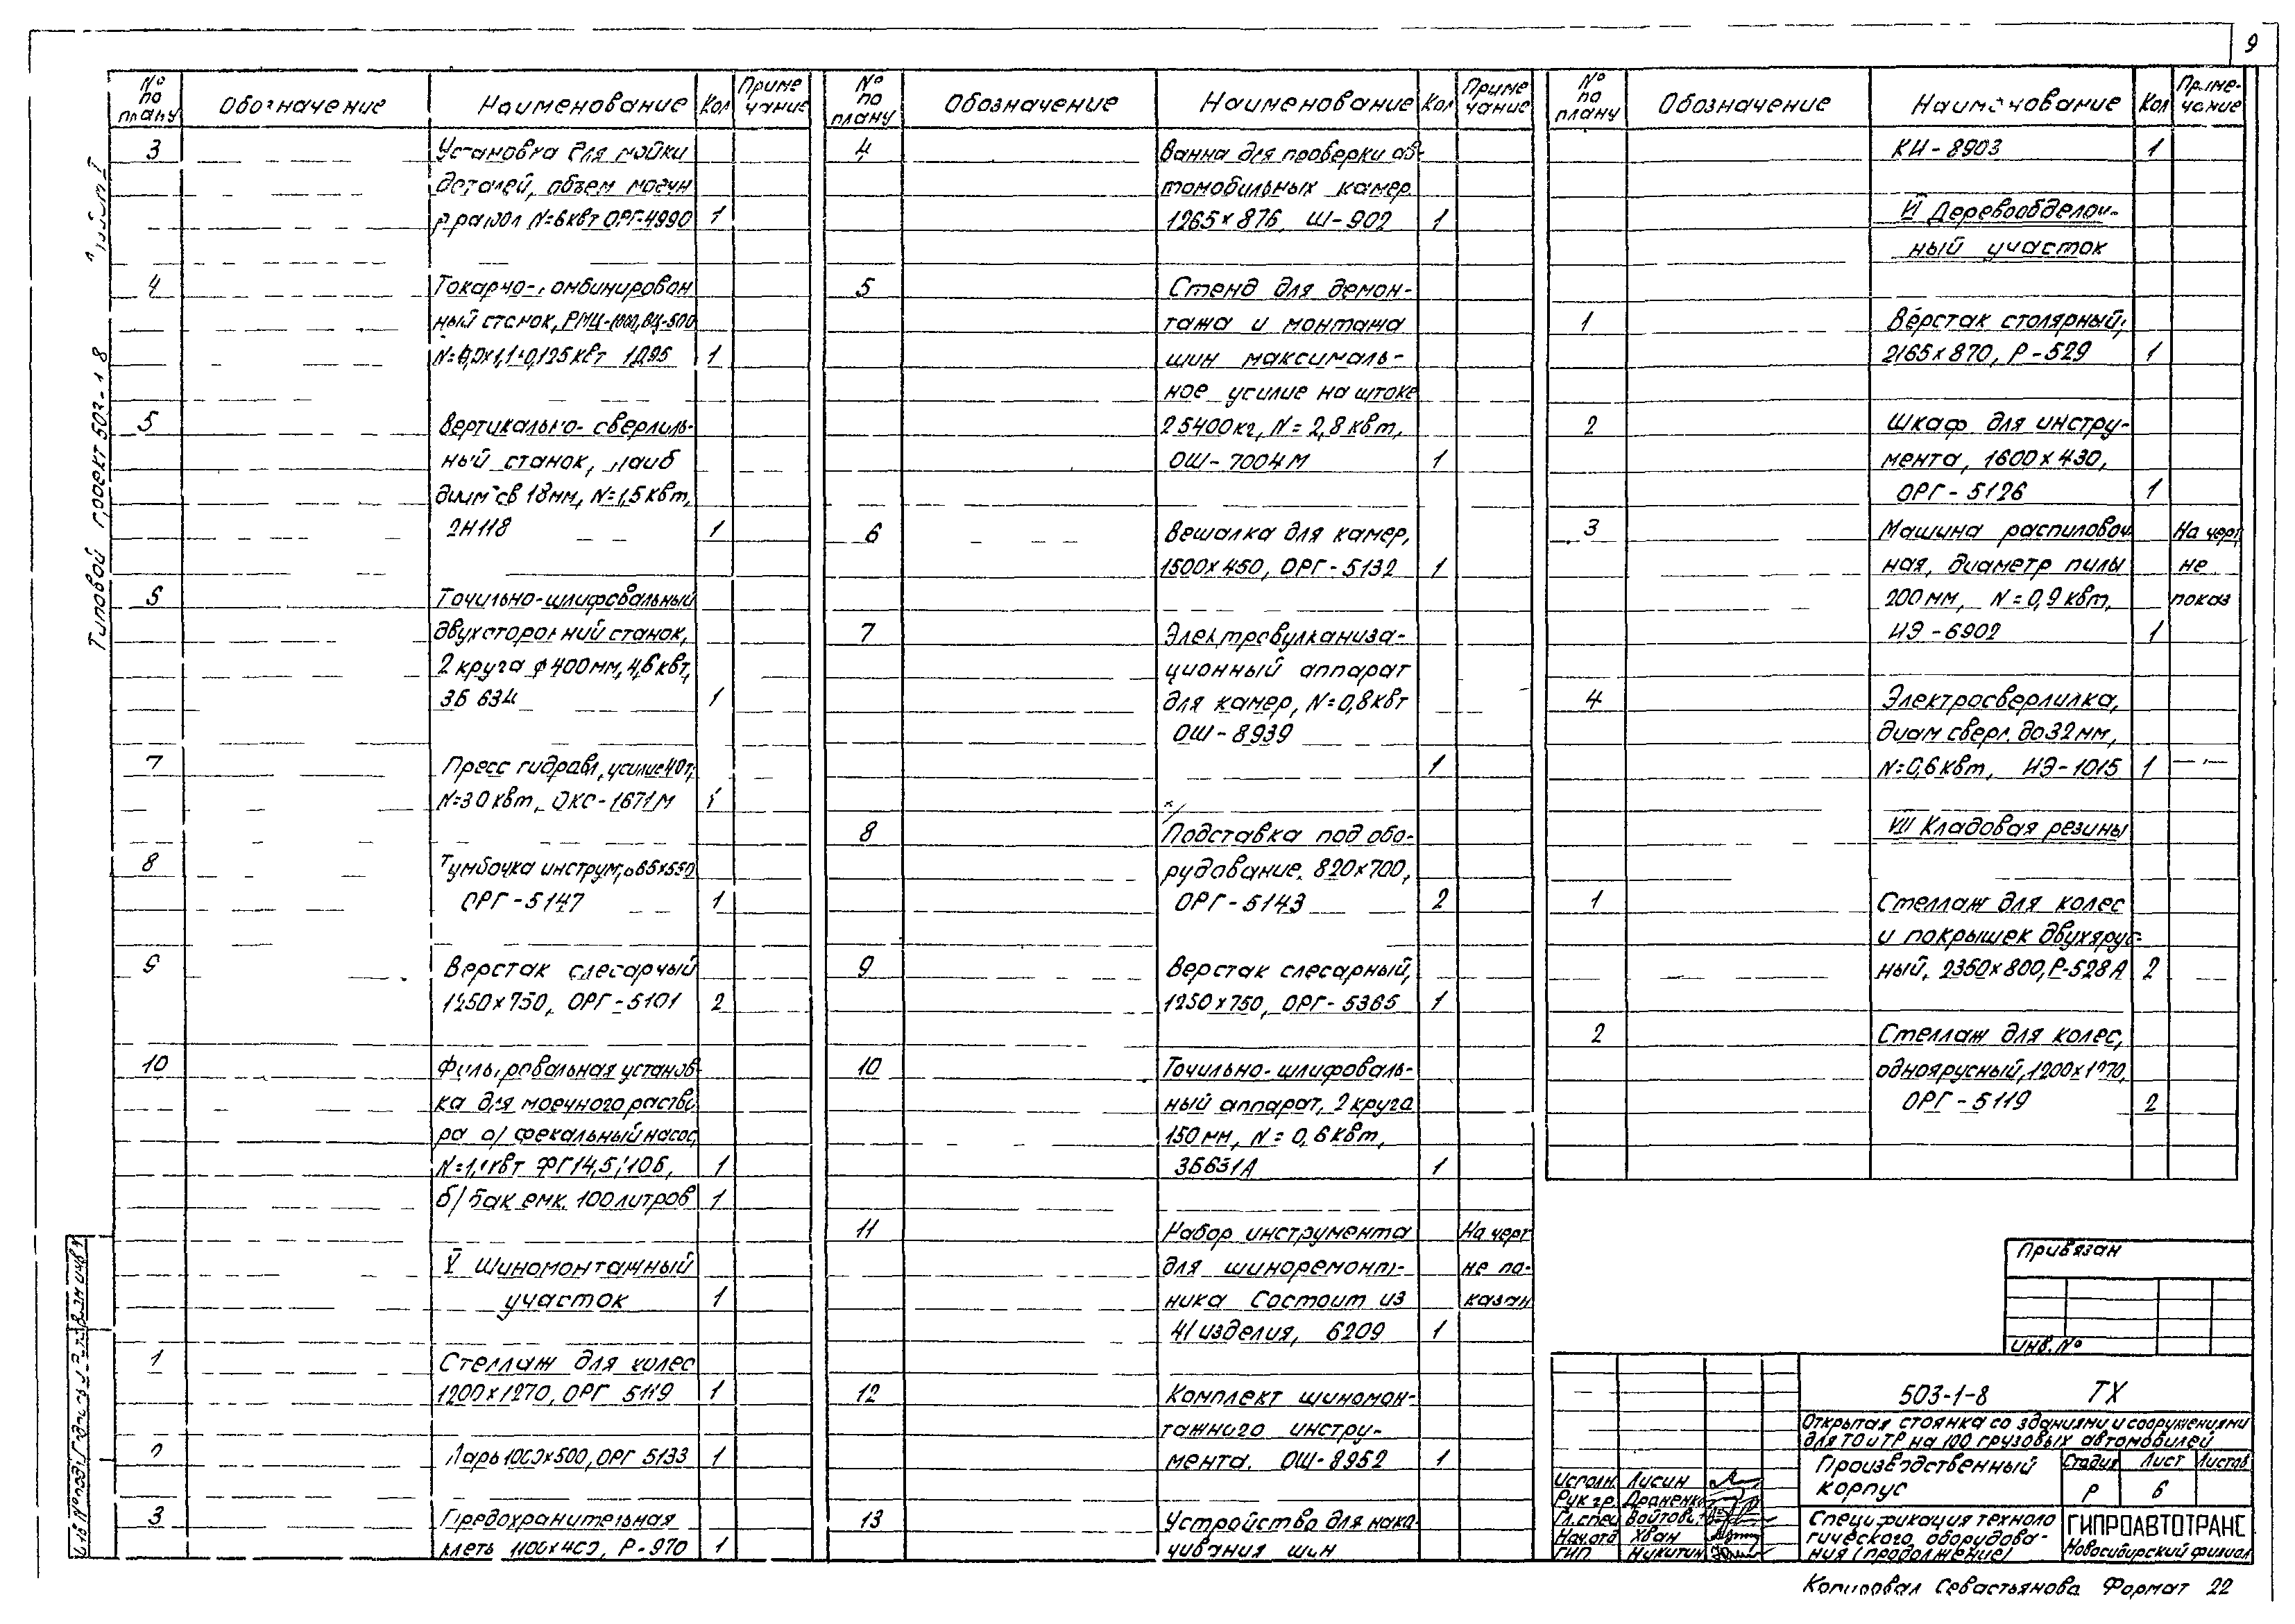 9
№ по плану Обозначение Наименование Кол Приме чание
3 Установка для мойки
деталей, объем моечн
N=6квт ОРГ-4990 1
4 Токарно-
ный станок,
1Д95 1
5 Вертикально-сверлиль-
ный станок, наиб
диам св 18мм, N=1,5квт,
2Н118 1
Точильно-шлифовальный
двухсторонний станок,
2 круга ф400мм, 4,6квт,
3Б 634 1
7 Пресс гидравл, усилие 40т,
ОКС-1671М
8 Тумбочка инструм,
ОРГ-5147 1
9 Верстак слесарный
1250×750, ОРГ-5101 2
10 Фильтровальная установ-
ка для моечного раство
ра а/ фекальный насос,
1
б/ бак емк. 100 литров 1
V Шиномонтажный
участок 1
1 Стеллаж для колес
1200×1270, ОРГ 5119 1
Ларь 1000×500, ОРГ 5133 1
3 Предохранительная
клеть Р-970 1
№ по плану Обозначение Наименование Кол Приме чание
4 Ванна для проверки ав-
томобильных камер.
1265×876, Ш-902 1
5 Стенд для демон-
тажа и монтажа
шин максималь-
ное усилие на штоке
25400кг, N=2,8квт,
ОШ-7004М 1
6 Вешалка для камер,
1500×450, ОРГ-5132 1
7 Электровулканиза-
ционный аппарат
для камер, N=0,8квт
ОШ-8939
1
8 Подставка под обо-
рудование. 820×700,
ОРГ-5143 2
9 Верстак слесарный,
1250×750, ОРГ-5365 1
10 Точильно-шлифоваль-
ный аппарат, 2 круга
150мм, N=0,6квт,
3Б631А 1
11 Набор инструмента На черт
для шиноремонт- не по-
ника Состоит из казан
41 изделия, 6209 1
12 Комплект шиномон-
тажного инстру-
мента. ОШ-8952 1
13 Устройство для нака-
чивания шин
№ по плану Обозначение Наименование Кол Приме- чание
КИ-8903 1
VI Деревообделоч-
ный участок
1 Верстак столярный,
2165×870, Р-529 1
2 Шкаф для инстру-
мента, 1600×430,
ОРГ-5126 1
3 Машина распиловоч На черт
ная, диаметр пилы не
200мм, N=0,9квт, показ
ИЭ-6902 1
4 Электросверлилка,
диам сверл. до 32мм,
N=0,6квт, ИЭ-1015 1 —"—
VII Кладовая резины
1 Стеллаж для колес
и покрышек двухярус-
ный. 2350×800, Р-528А 2
2 Стеллаж для колес,
одноярусный, 1200×1270,
ОРГ-5119 2
Типовой проект 503-1-8
Привязан
Инв. №
503-1-8 ТХ
Открытая стоянка со зданиями и сооружениями
для ТО и ТР на 100 грузовых автомобилей
Производственный
корпус
Стадия Лист Листов
Р 6
Исполн. Лисин
Рук гр. Драненко
Гл.спец
Нач.отд Хван
ГИП Никитин
Спецификация техноло
гического оборудова-
ния (продолжение)
ГИПРОАВТОТРАНС
Новосибирский филиал
Копировал Севастьянова Формат 22